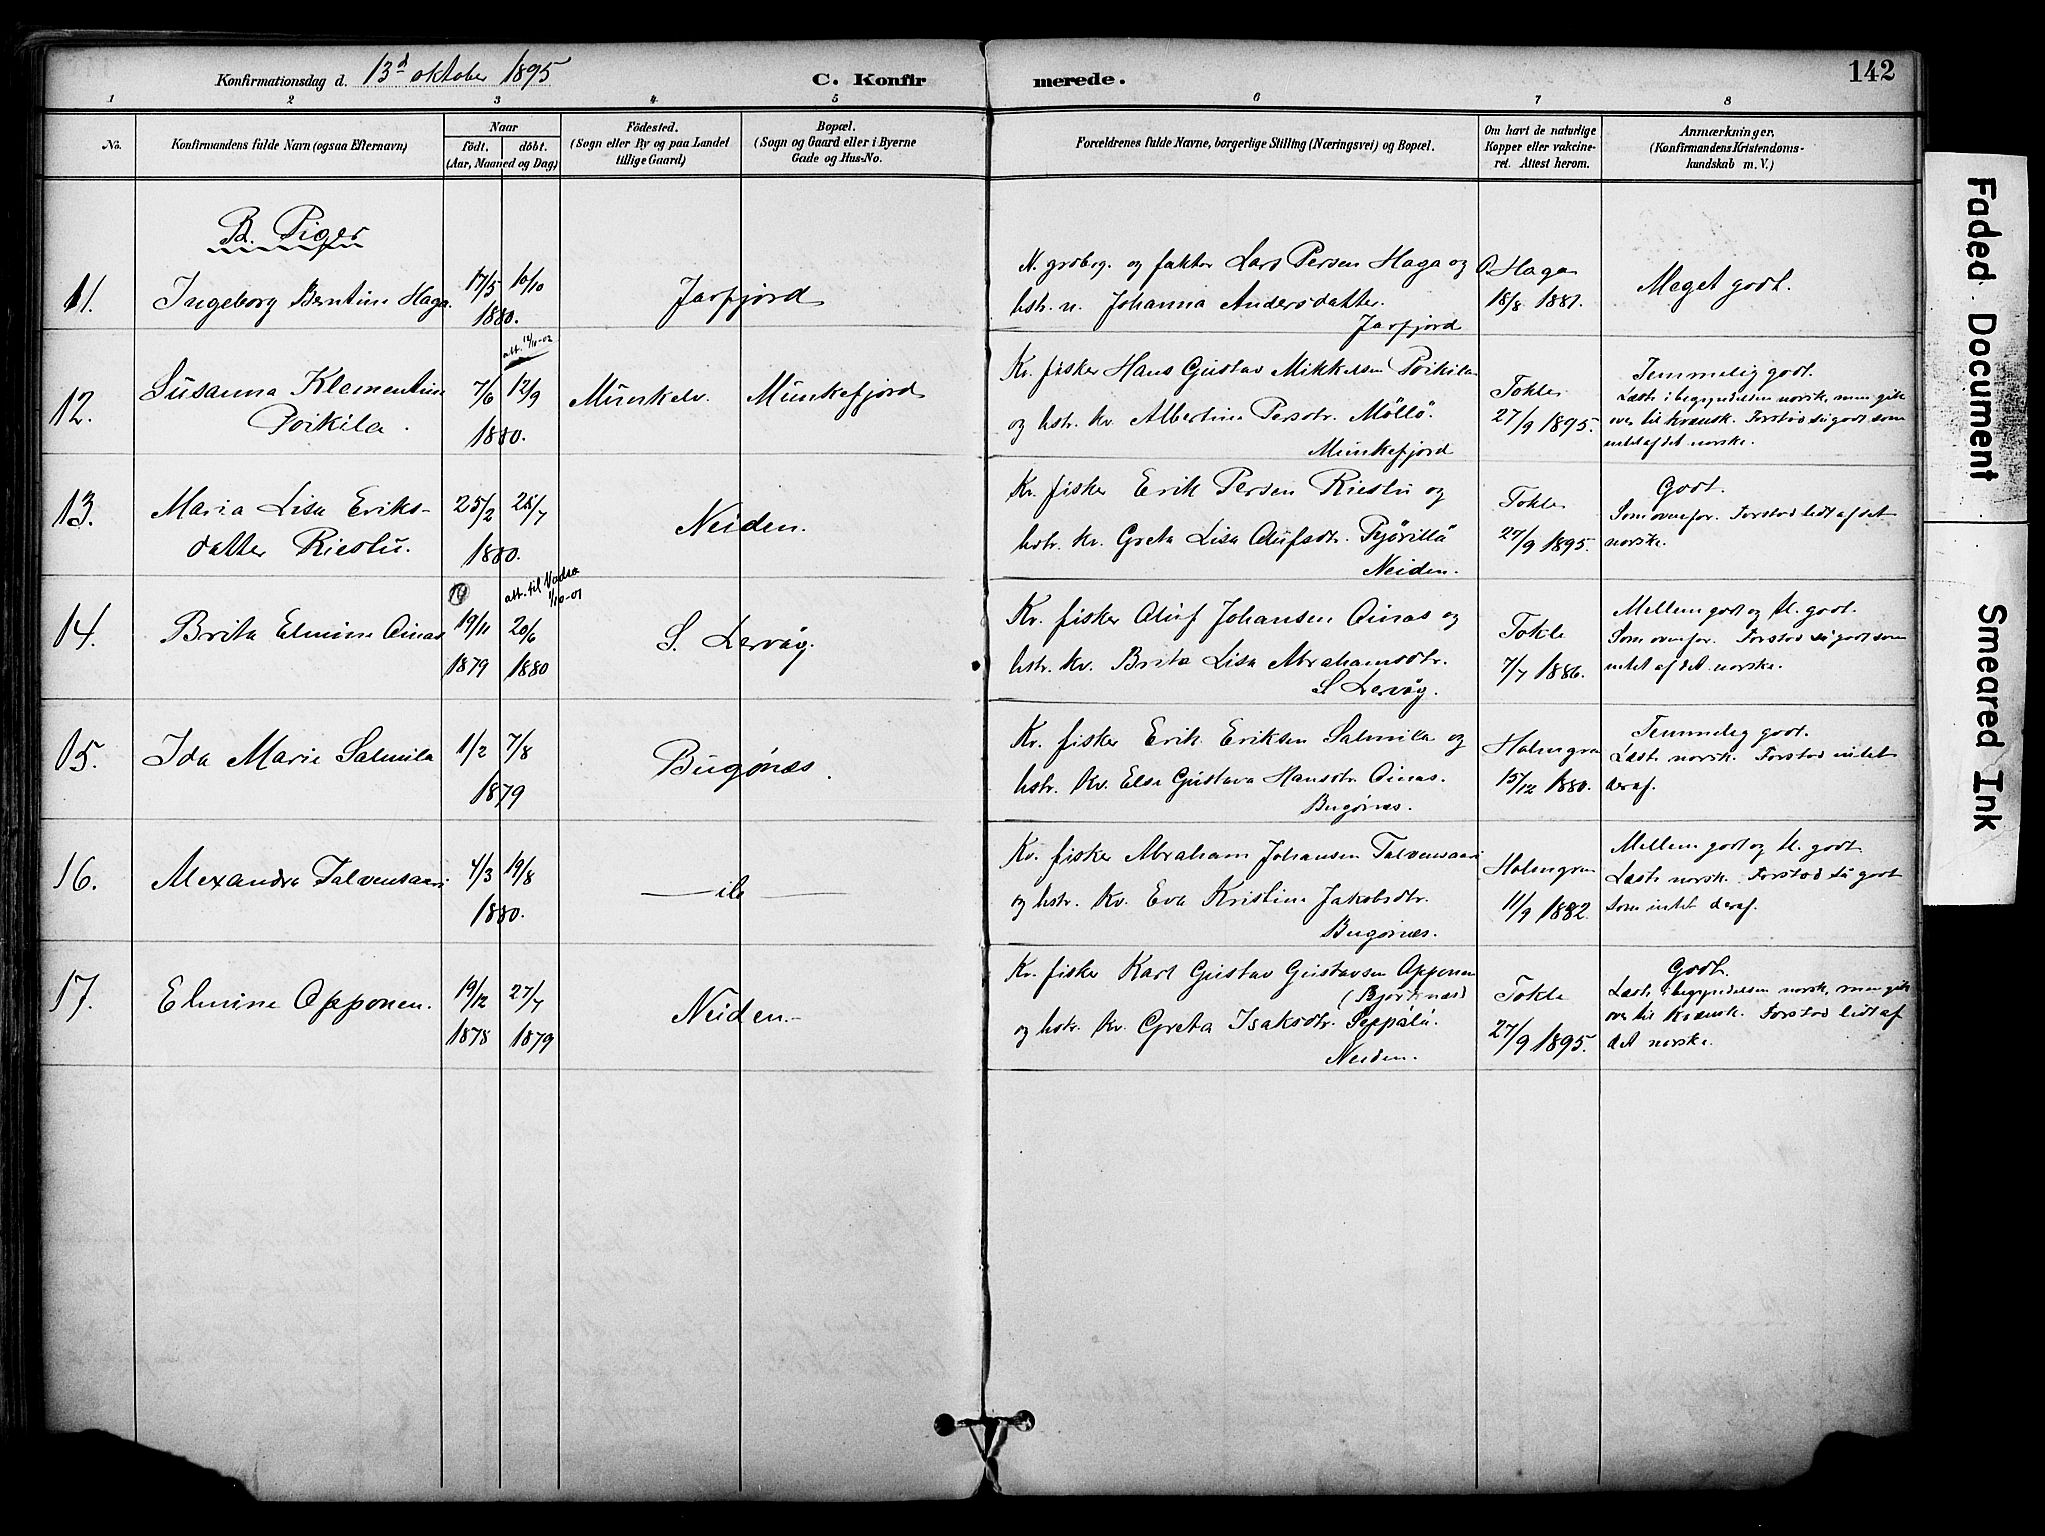 Konfirmationsdag d. 13d oktober 1895
C. Konfirmerede.
142
1 2 3 4 5 6 7 8
No.
Konfirmandens fulde Navn (ogsaa Efternavn)
Naar
födt. döbt.
(Aar, Maaned og Dag)
Födested.
(Sogn eller By og paa Landet
tillige Gaard)
Bopæl.
(Sogn og Gaard eller i Byerne
Gade og Hus-No.
Forældrenes fulde Navne, borgerlige Stilling (Næringsvei) og Bopæl.
Om havt de naturlige
Kopper eller vakcine-
ret. Attest herom.
Anmærkninger.
(Konfirmandens Kristendoms-
kundskab m. V.)
B. Piger
11.
Ingeborg Berntine Haga
17/5 10/10
1880.
Jarfjord
N. grdbrg. og faktor Lars Persen Haga og
hstr. n. Johanna Andersdatter.
Jarfjord
O Haga
18/8 1881.
Meget godt.
12.
Susanna Klementine
Poikila.
7/6 12/9
1880.
Munkelv.
Munkefjord
Kv. fisker Hans Gustav Mikkelsen Poikila
og hstr. kv. Albertine Persdtr. Möllö.
Munkefjord
Tokle
27/9 1895.
Temmelig godt.
Læste i begyndelsen norsk, men gik
over til kvænsk. Forstod så godt som
intet af det norske.
13.
Maria Lisa Eriks-
datter Riestu.
25/2 25/7
1880.
Neiden.
Kv. fisker Erik Persen Riestu og
hstr. kv. Greta Lisa Olufsdtr. Pyörillö
Neiden.
Tokle
27/9 1895.
Godt.
Som ovenfor. Forstod lidt af det
norske.
14.
Brita Elmine Oinas
att. til Vadsø
1/10-01
19/11 20/6
1879 1880
S. Lervåg.
Kv. fisker Oluf Johansen Oinas og
hstr. kv. Brita Lisa Abrahamsdtr.
S. Lervåg.
Tokle
7/7 1886.
Mellem godt og tl. godt.
Som ovenfor. Forstod så godt som
intet af det norske.
15.
Ida Marie Salmila
1/2 7/8
1879
Bugønæs.
Kv. fisker Erik Eriksen Salmila og
hstr. kv. Elsa Gustava Hansdtr. Oinas.
Bugønæs.
Holmgren
15/12 1880.
Temmelig godt.
Læste norsk. Forstod intet
deraf.
16.
Alexandra Talvensaari
4/3 19/8
1880.
— ib —
Kv. fisker Abraham Johansen Talvensaari
og hstr. kv. Eva Kristine Jakobsdtr.
Bugønæs.
Holmgren
11/9 1882.
Mellem godt og tl. godt
Læste norsk. Forstod så godt
som intet deraf.
17.
Elmine Opponen.
19/12 27/7
1878 1879
Neiden.
Kv. fisker Karl Gustav Gustavsen Opponen
(Bjørknæs)
og hstr. kv. Greta Isaksdtr. Seppälä.
Neiden.
Tokle
27/9 1895.
Godt.
Læste i begyndelsen norsk, men gik
over til kvænsk. Forstod lidt af
det norske.
Faded Document
Smeared Ink